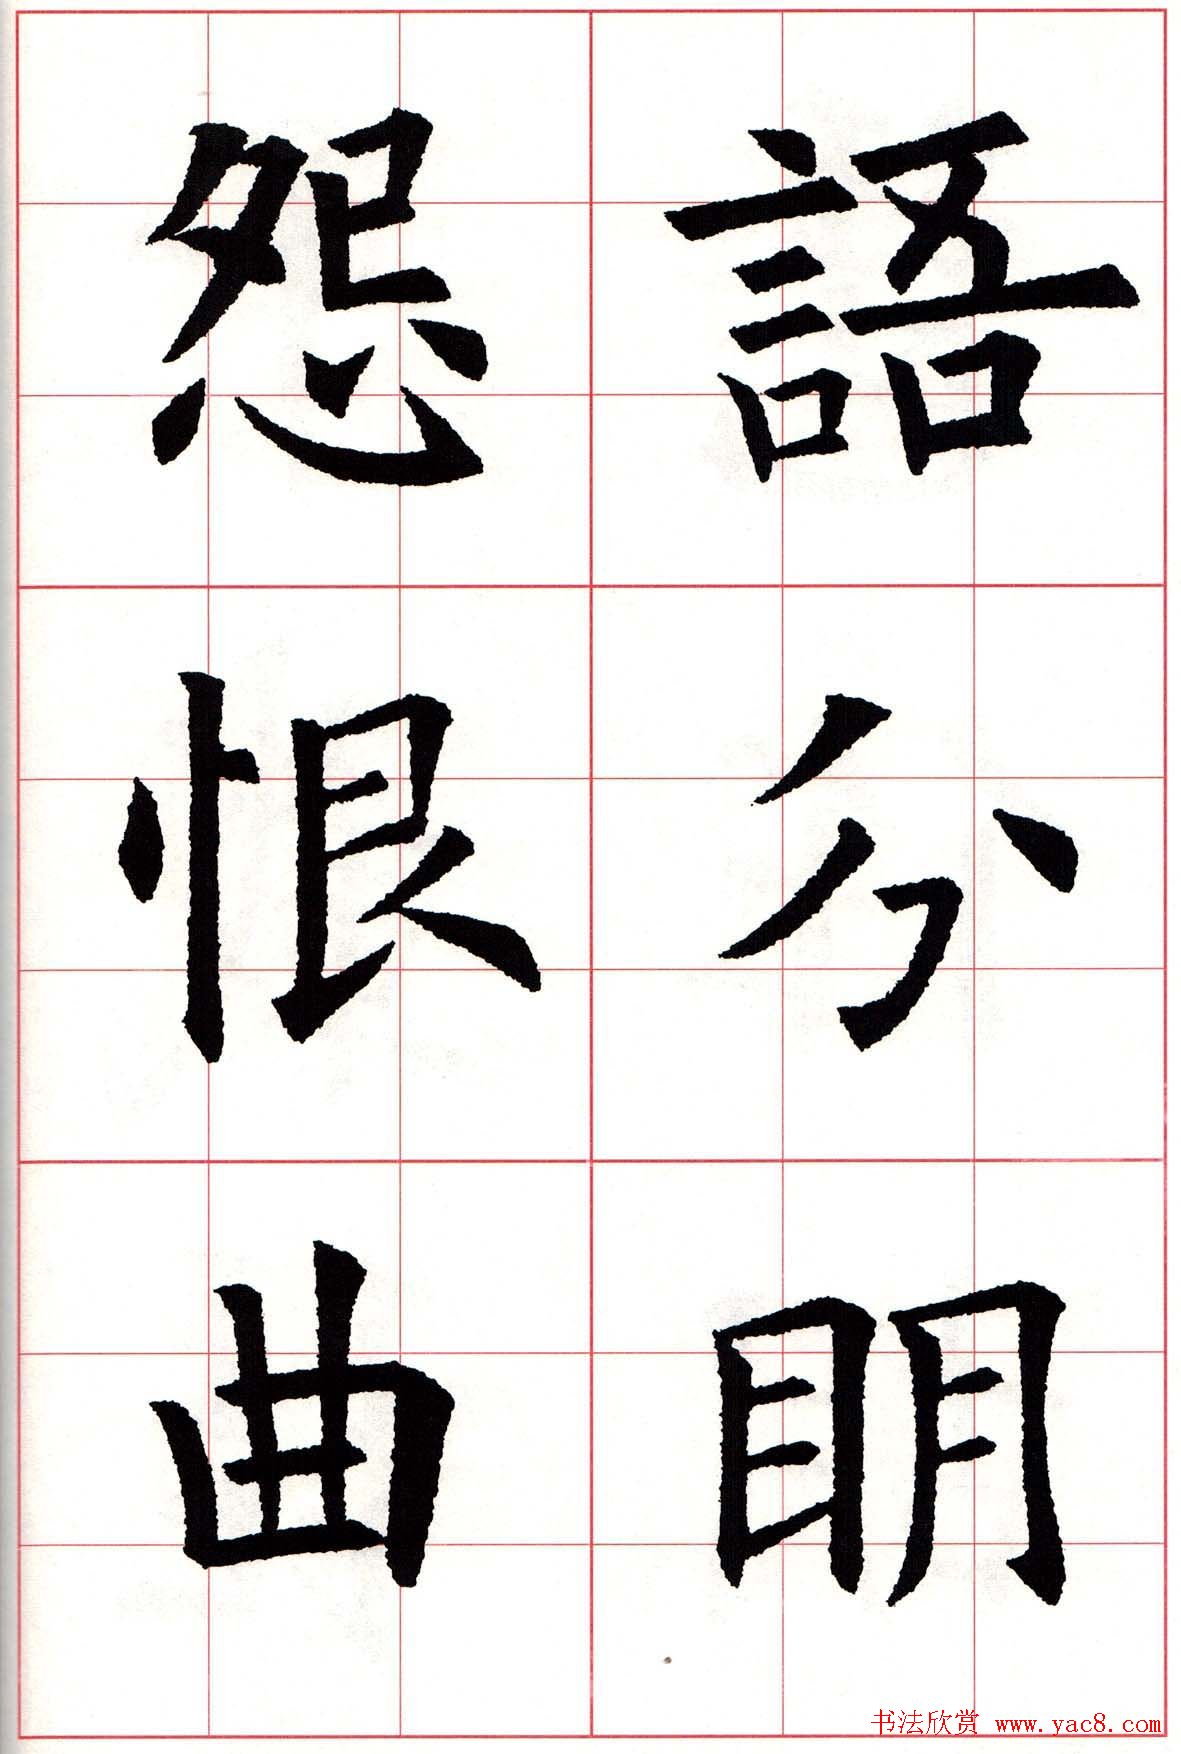 語分明
怨恨曲
书法欣赏 www.yac8.com